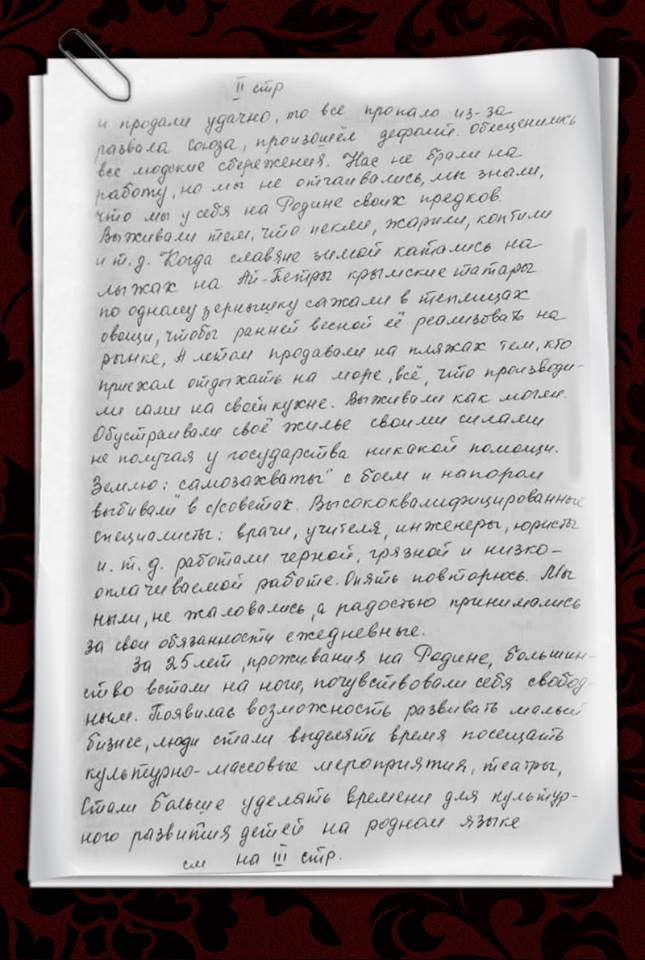 II стр
и продали удачно, то все пропало из-за
развала союза, произошёл дефолт. Обесценились
все людские сбережения. Нас не брали на
работу, но мы не отчаивались, мы знали,
что мы у себя на Родине своих предков.
Выживали тем, что пекли, жарили, коптили
и т.д. Когда славяне зимой катались на
лыжах на Ай-Петры крымские татары
по одному зернышку сажали в теплицах
овощи, чтобы ранней весной её реализовать на
рынке, А летом продавали на пляжах тем, кто
приехал отдыхать на море, всё, что производи-
ли сами на своей кухне. Выживали как могли.
Обустраивали своё жилье своими силами
не получая у государства никакой помощи.
Землю: самозахваты" с боем и напором
выбивали" в с/советах. Высококвалифицированные
специалисты: врачи, учителя, инженеры, юристы
и. т. д. работали черной, грязной и низко-
оплачиваемой работе. Опять повторюсь. Мы
ныли, не жаловались, а радостью принимались
за свои обязанности ежедневные.
За 25 лет, проживания на Родине, большин-
ство встали на ноги, почувствовали себя свобод-
ным. Появилась возможность развивать малый
бизнес, люди стали выделять время посещать
культурно-массовые мероприятия, театры,
Стали больше уделять времени для культур-
ного развития детей на родном языке
см на III стр.